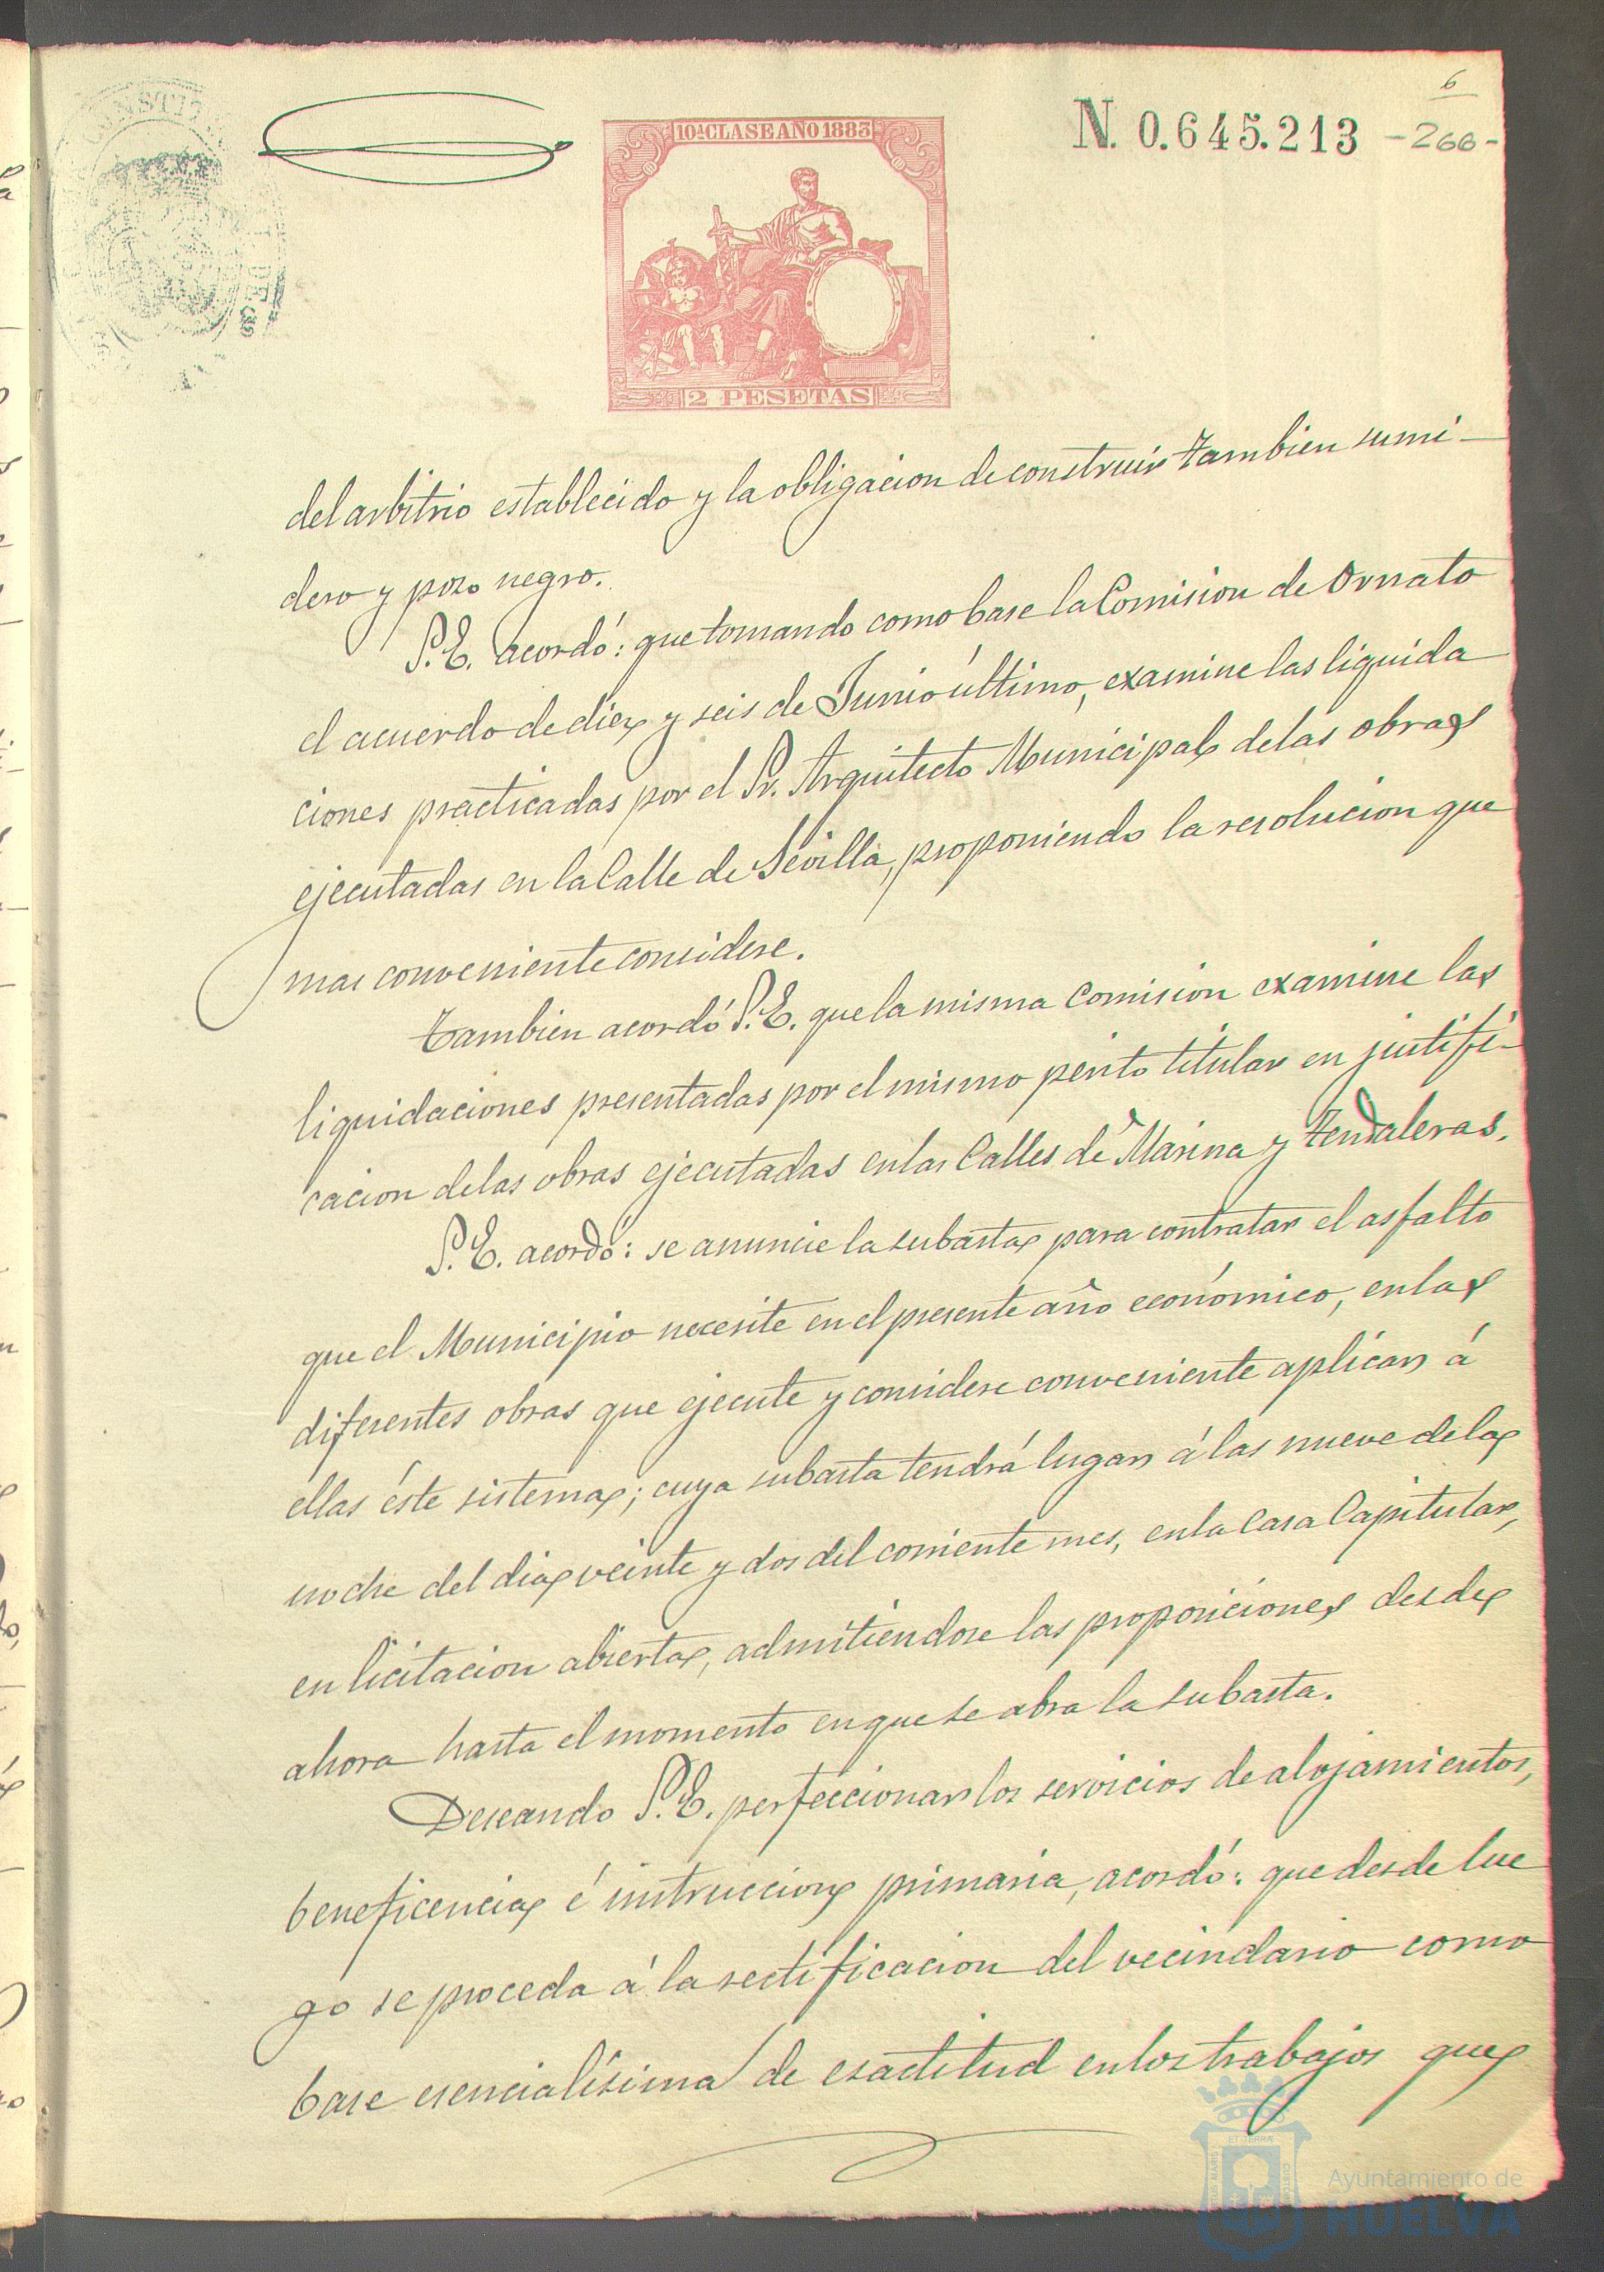 6
10ª CLASE AÑO 1883
N. 0.645.213
-266-
2 PESETAS
del arbitrio establecido y la obligacion de construir tambien sumi-
dero y pozo negro.
S.E. acordó: que tomando como base la Comision de Ornato
el acuerdo de diez y seis de Junio último, examine las liquida
ciones practicadas por el Sr. Arquitecto Municipal de las obras
ejecutadas en la Calle de Sevilla, proponiendo la resolucion que
mas conveniente considere.
Tambien acordó S.E. que la misma Comision examine las
liquidaciones presentadas por el mismo perito titular en justifi-
cacion de las obras ejecutadas en las Calles de Marina y Tendaleras.
S.E. acordó: se anuncie la subasta para contratar el asfalto
que el Municipio necesite en el presente año económico, en las
diferentes obras que ejecute y considere conveniente aplicar á
ellas éste sistema; cuya subasta tendrá lugar á las nueve de la
noche del dia veinte y dos del corriente mes, en la Casa Capitular,
en licitacion abierta, admitiendose las proposiciones desde
ahora hasta el momento en que se abra la subasta.
Deseando S.E. perfeccionar los servicios de alojamientos,
beneficencia é instruccion primaria, acordó: que desde lue
go se proceda á la rectificacion del vecindario como
base esencialísima de esactitud en los trabajos que
Ayuntamiento de
HUELVA